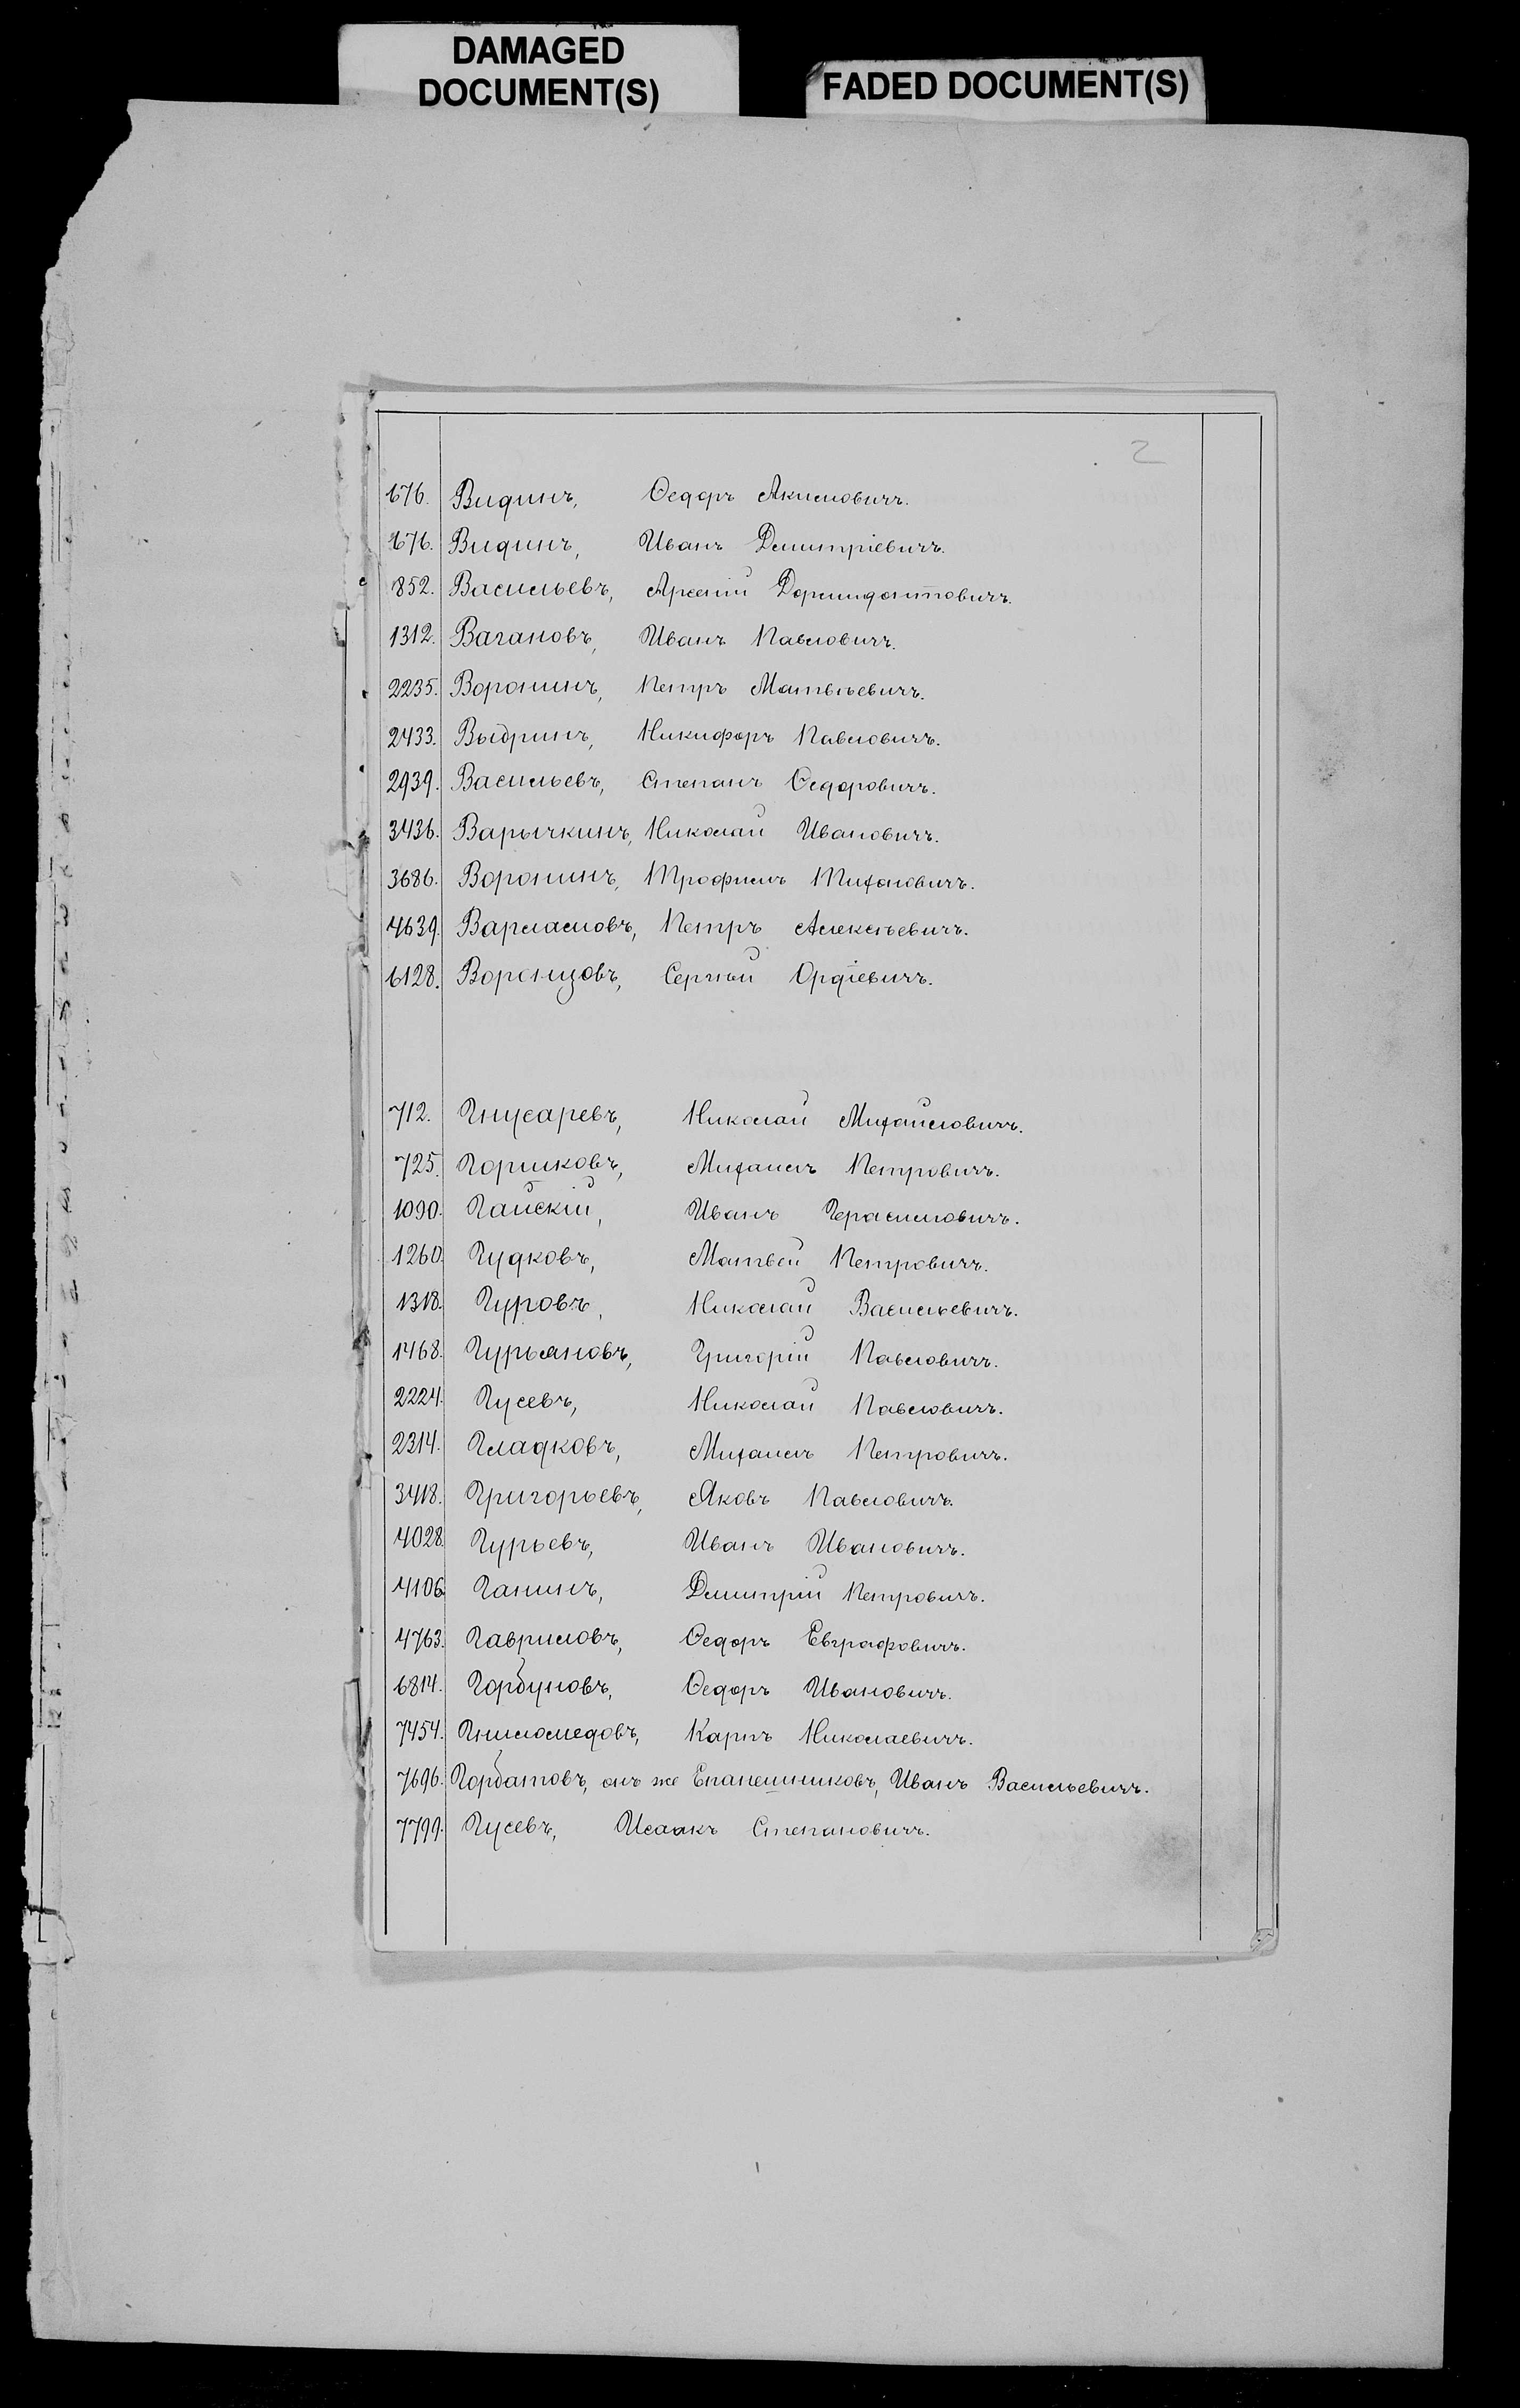 DAMAGED
DOCUMENT(S)
FADED DOCUMENT(S)
2
676. Видинъ, Ѳедоръ Акимовичъ.
676. Видинъ, Иванъ Димитріевичъ.
852. Васильевъ, Арсеній Дормидонтовичъ.
1312. Вагановъ, Иванъ Павловичъ.
2235. Воронинъ, Петръ Матвѣевичъ.
2433. Выдринъ, Никифоръ Павловичъ.
2939. Васильевъ, Степанъ Ѳедоровичъ.
3436. Варычкинъ, Николай Ивановичъ.
3686. Воронинъ, Трофимъ Тихоновичъ.
4639. Варламовъ, Петръ Алексѣевичъ.
6128. Воронцовъ, Сергѣй Ордіевичъ.
712. Гнусаревъ, Николай Михайловичъ.
725. Горшковъ, Михаилъ Петровичъ.
1090. Гайскій, Иванъ Герасимовичъ.
1260. Гудковъ, Матвѣй Петровичъ.
1318. Гуровъ, Николай Васильевичъ.
1468. Гурьяновъ, Григорій Павловичъ.
2224. Гусевъ, Николай Павловичъ.
2314. Гладковъ, Михаилъ Петровичъ.
3418. Григорьевъ, Яковъ Павловичъ.
4028. Гурьевъ, Иванъ Ивановичъ.
4106. Ганинъ, Димитрій Петровичъ.
4763. Гавриловъ, Ѳедоръ Евграфовичъ.
6814. Горбуновъ, Ѳедоръ Ивановичъ.
7454. Гниломедовъ, Карпъ Николаевичъ.
7696. Горбатовъ, онъ же Епанешниковъ, Иванъ Васильевичъ.
7799. Гусевъ, Исаакъ Степановичъ.